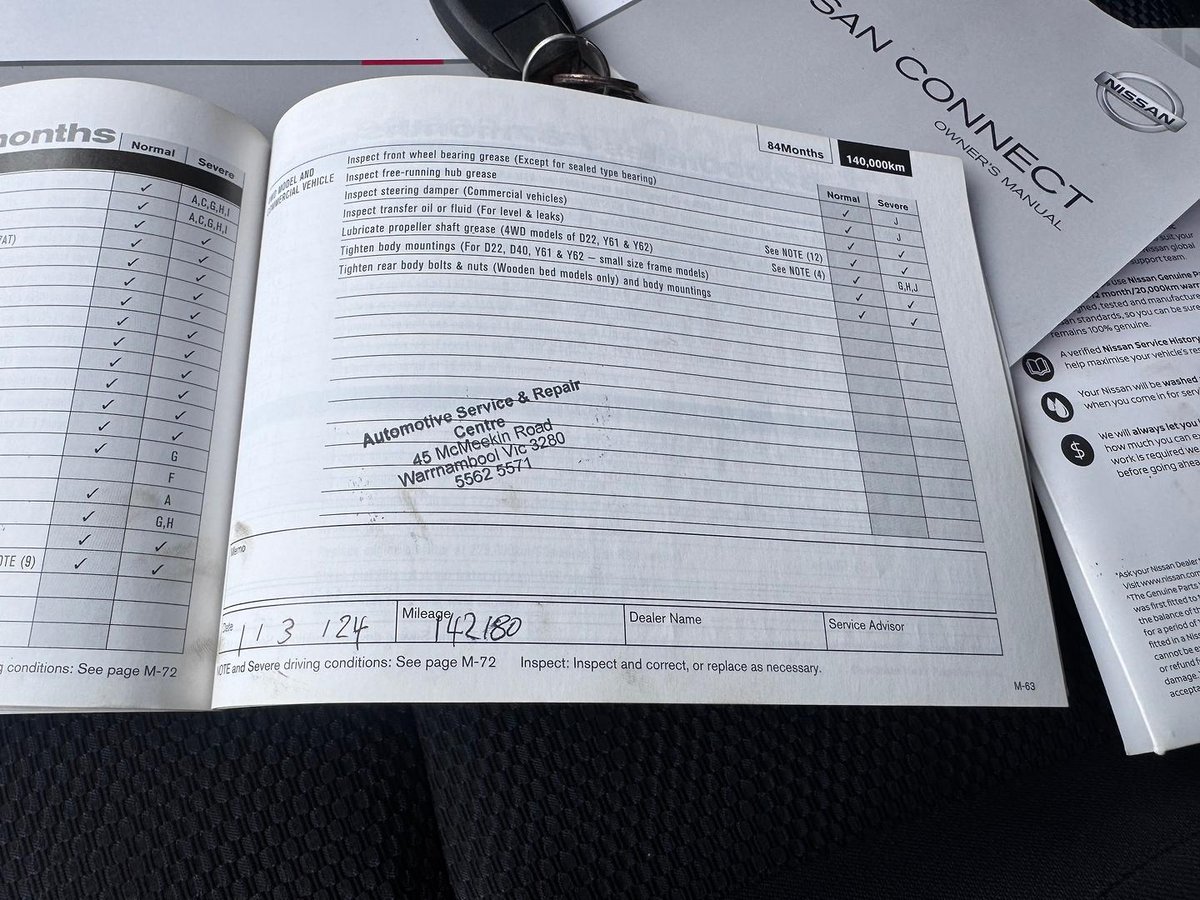 nonths
Normal
Severe
✓ A,C,G,H,I
✓ A,C,G,H,I
✓ ✓
✓ ✓
✓ ✓
✓ ✓
✓ ✓
✓ ✓
✓ ✓
✓ ✓
✓ ✓
✓ G
F
✓ A
✓ G,H
✓ ✓
OTE (9) ✓ ✓
g conditions: See page M-72
84Months 140,000km
MODEL AND
COMMERCIAL VEHICLE
Normal Severe
Inspect front wheel bearing grease (Except for sealed type bearing) ✓ J
Inspect free-running hub grease ✓ J
Inspect steering damper (Commercial vehicles) ✓ ✓
Inspect transfer oil or fluid (For level & leaks) ✓ ✓
Lubricate propeller shaft grease (4WD models of D22, Y61 & Y62) See NOTE (12) ✓ G,H,J
Tighten body mountings (For D22, D40, Y61 & Y62 – small size frame models) See NOTE (4) ✓ ✓
Tighten rear body bolts & nuts (Wooden bed models only) and body mountings ✓ ✓
Automotive Service & Repair
Centre
45 McMeekin Road
Warrnambool Vic 3280
5562 5571
Memo
Date 1 / 3 / 24
Mileage 142180
Dealer Name
Service Advisor
NOTE and Severe driving conditions: See page M-72 Inspect: Inspect and correct, or replace as necessary.
M-63
SSAN CONNECT
OWNER'S MANUAL
NISSAN
suit your
issan global
support team.
use Nissan Genuine P
12 month/20,000km warr
gned, tested and manufactur
an standards, so you can be sure
remains 100% genuine.
A verified Nissan Service History
help maximise your vehicle's res
Your Nissan will be washed
when you come in for serv
$
We will always let you
how much you can
work is required we
before going ahea
*Ask your Nissan Dealer
Visit www.nissan.com
^The Genuine Parts
was first fitted to
the balance of th
for a period of
fitted in a Niss
cannot be ex
or refund
damage.
accepta